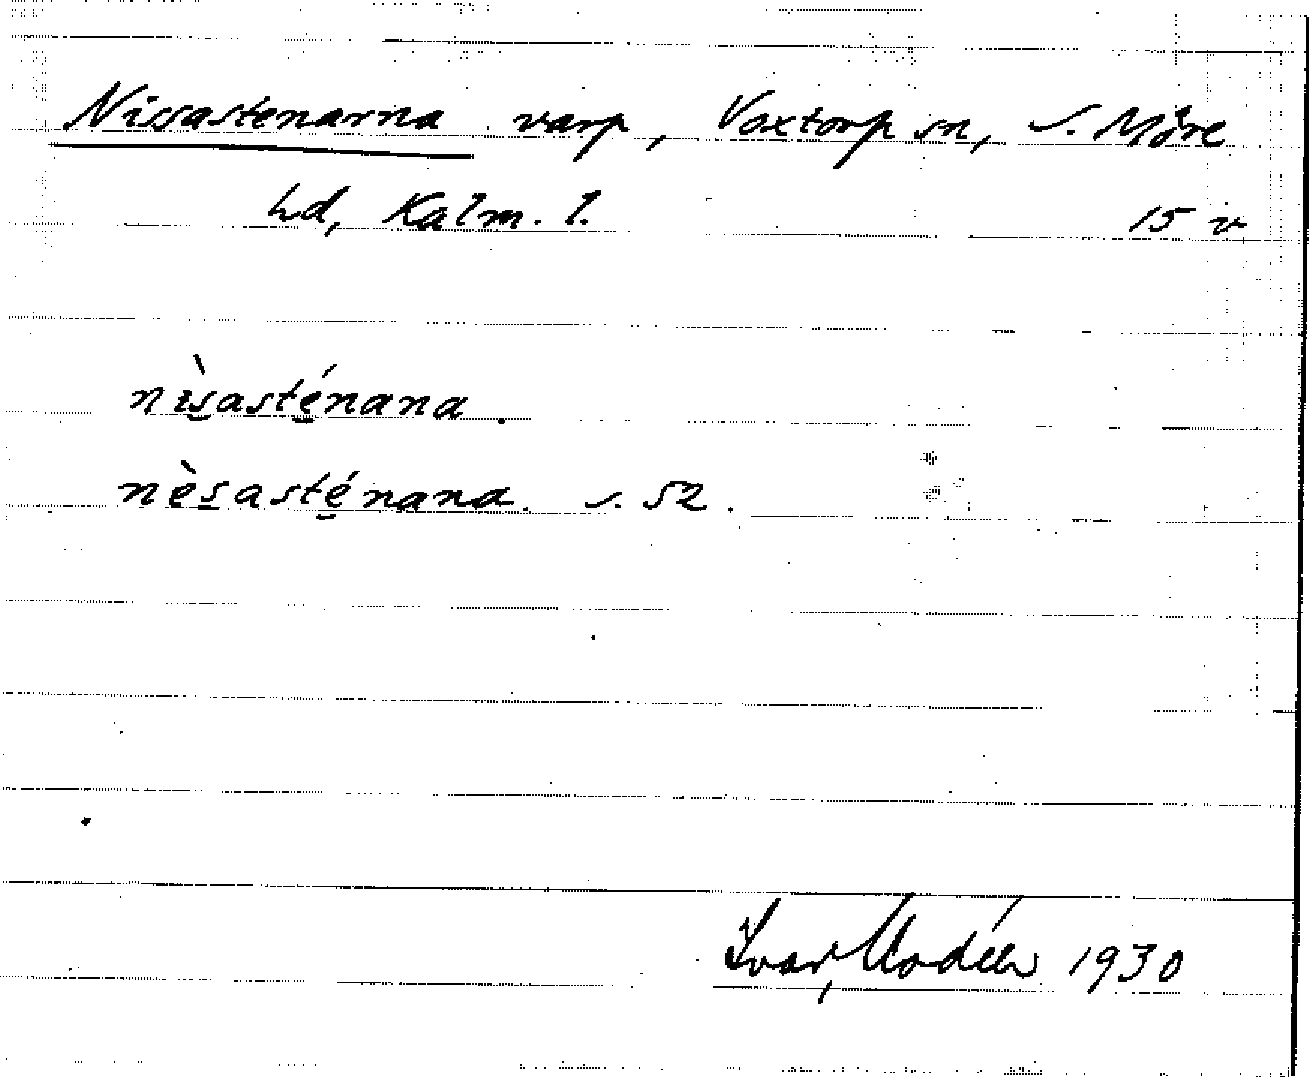 Nissastenarna varp, Voxtorp sn, S. Möre
hd, Kalm. l. 15 v
nìs̲asté̲nana.
nès̲asté̲nana. s. 52.
Ivar Modéer 1930